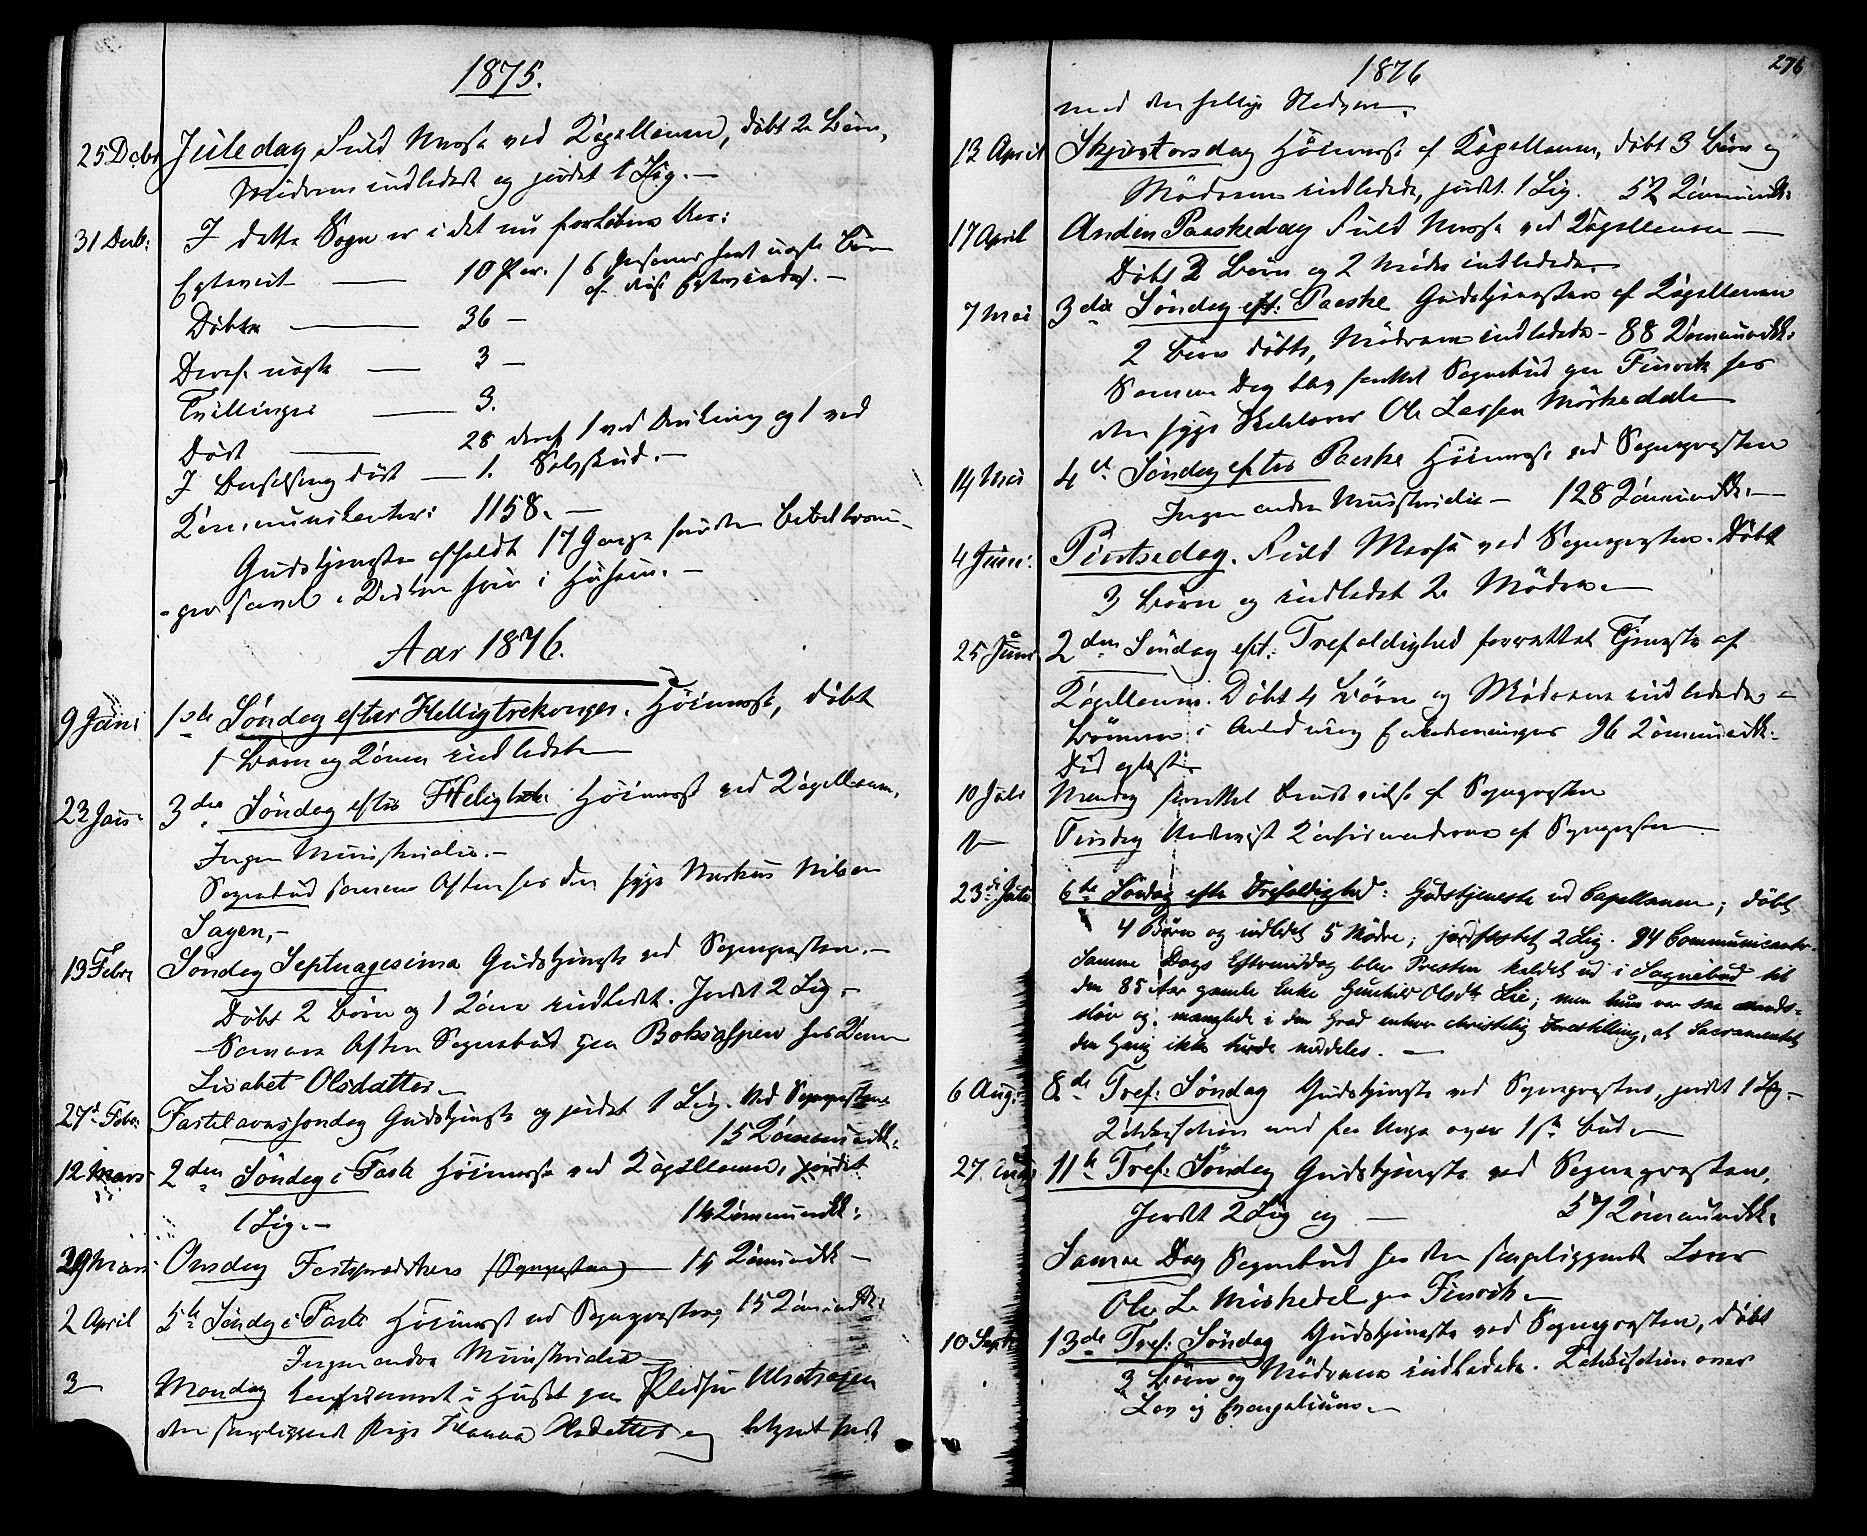 1875.
25 Decbr Juledag Fuld Messe ved Capellanen, döbt 2 Börn,
Mödrene indledet og jordet 1 Lig. –
31 Decb: I dette Sogn er i det nu forløbne Aar:
Egteviet — 10 Par. / 6 Personer havt uægte Börn
Döbte — 36 –
Deraf uægte — 3 –
Tvillinger — 3.
Död — 28 deraf 1 ved Drukning og 1 ved
I Barselseng död — 1.
Communikanter: 1158. –
Gudstjeneste afholdt 17 Gange foruden
Aar 1876.
9 Jani 1ste Söndag efter Helligtrekonger. Höimesse, döbt
1 Barn og Konen indledet
23 Jan: 3die Söndag efter Hellig Höimesse ved Capellanen,
Ingen Ministerialia. –
Sognebud samme Aften hos den syge Markus Nilsen
Sagen, –
13 Febr Söndag Septuagesima Gudstjeneste ved Sognepresten. –
Döbt 2 Börn og 1 Kone indledet. Jordet 2 Lig. –
Samme Aften Sognebud paa hos Konen
Lisabet Olsdatter –
27d Febr: Fastelavnssöndag Gudstjeneste og jordet 1 Lig. Ved Sognepresten
15 Communikk:
12 Mars 2den Söndag i Faste Höimesse ved Capellanen, jordet
1 Lig. – 14 Communikk:
29 Mars Onsdag Fasteprædiken (Sognepresten) — 14 Communikk –
2 April 5te Söndag i Faste Höimesse ved Sognepresten, 15 Communikk:
Ingen andre Ministerialia
3 — Mandag i Huset paa
den sengeliggende Pige Olsdatter og betjent hende
1876
276
med den hellige Nadvere.
13 April Skjærtorsdag Höimesse af Capellanen, döbt 3 Börn og
Mödrene indledede, jordet 1 Lig. 52 Communikk:
17 April Anden Paaskedag Fuld Messe ved Capellanen —
Döbt 2 Börn og 2 Mödre indledede
7 Mai 3die Söndag eft: Paaske Gudstjenesten af Capellanen
2 Börn döbte, Mödrene indledede – 88 Communikk:
Samme Dag Sognebud paa Finvik hos
den syge Ole Larsen Mörkedale
14 Mai 4de Söndag efter Paaske Höimesse ved Sognepresten
Ingen andre Ministerialia – 128 Communikk. —
4 Juni: Pintsedag. Fuld Messe ved Sognepresten. Döbt
3 Börn og indledet 2 Mödre –
25 Juni 2den Söndag eft: Trefoldighed forrettet Tjeneste af
Capellanen. Döbt 4 Börn og Mödrene indledede –
i Anledning 96 Communikk:
10 Juli Mandag af Sognepresten
Tirsdag Undervist Confirmanderne af Sognepresten
23de Juli 6te Söndag efter Trefoldighed: Gudstjeneste ved Capellanen; döbt
4 Börn og indledet 5 Mödre; jordfæstet 2 Lig. 84 Communicanter.
Samme Dags Eftermiddag blev Presten kaldet ud i Sognebud til
den 85 Aar gamle Enke Gunhild Olsdtr Lie; men hun var saa aands-
slöv og manglede i den Grad enhver christelig Forestilling, at Sacramentet
den Gang ikke turde meddeles. —
6 Aug: 8de Tref: Söndag Gudstjeneste ved Sognepresten, jordet 1 Lig –
Catekisation med fra Unge over 1ste Bud –
27. Aug 11te Tref: Söndag Gudstjeneste ved Sognepresten,
Jordet 2 Lig og — 57 Communikk:
Samme Dag Sognebud hos den sengeliggende Lærer
Ole L. Mörkedal paa Finvik –
10 Septb 13de Tref: Söndag Gudstjeneste ved Sognepresten, döbt
3 Börn og Mödrene indledede. Catekisation over
Lov og Evangelium –